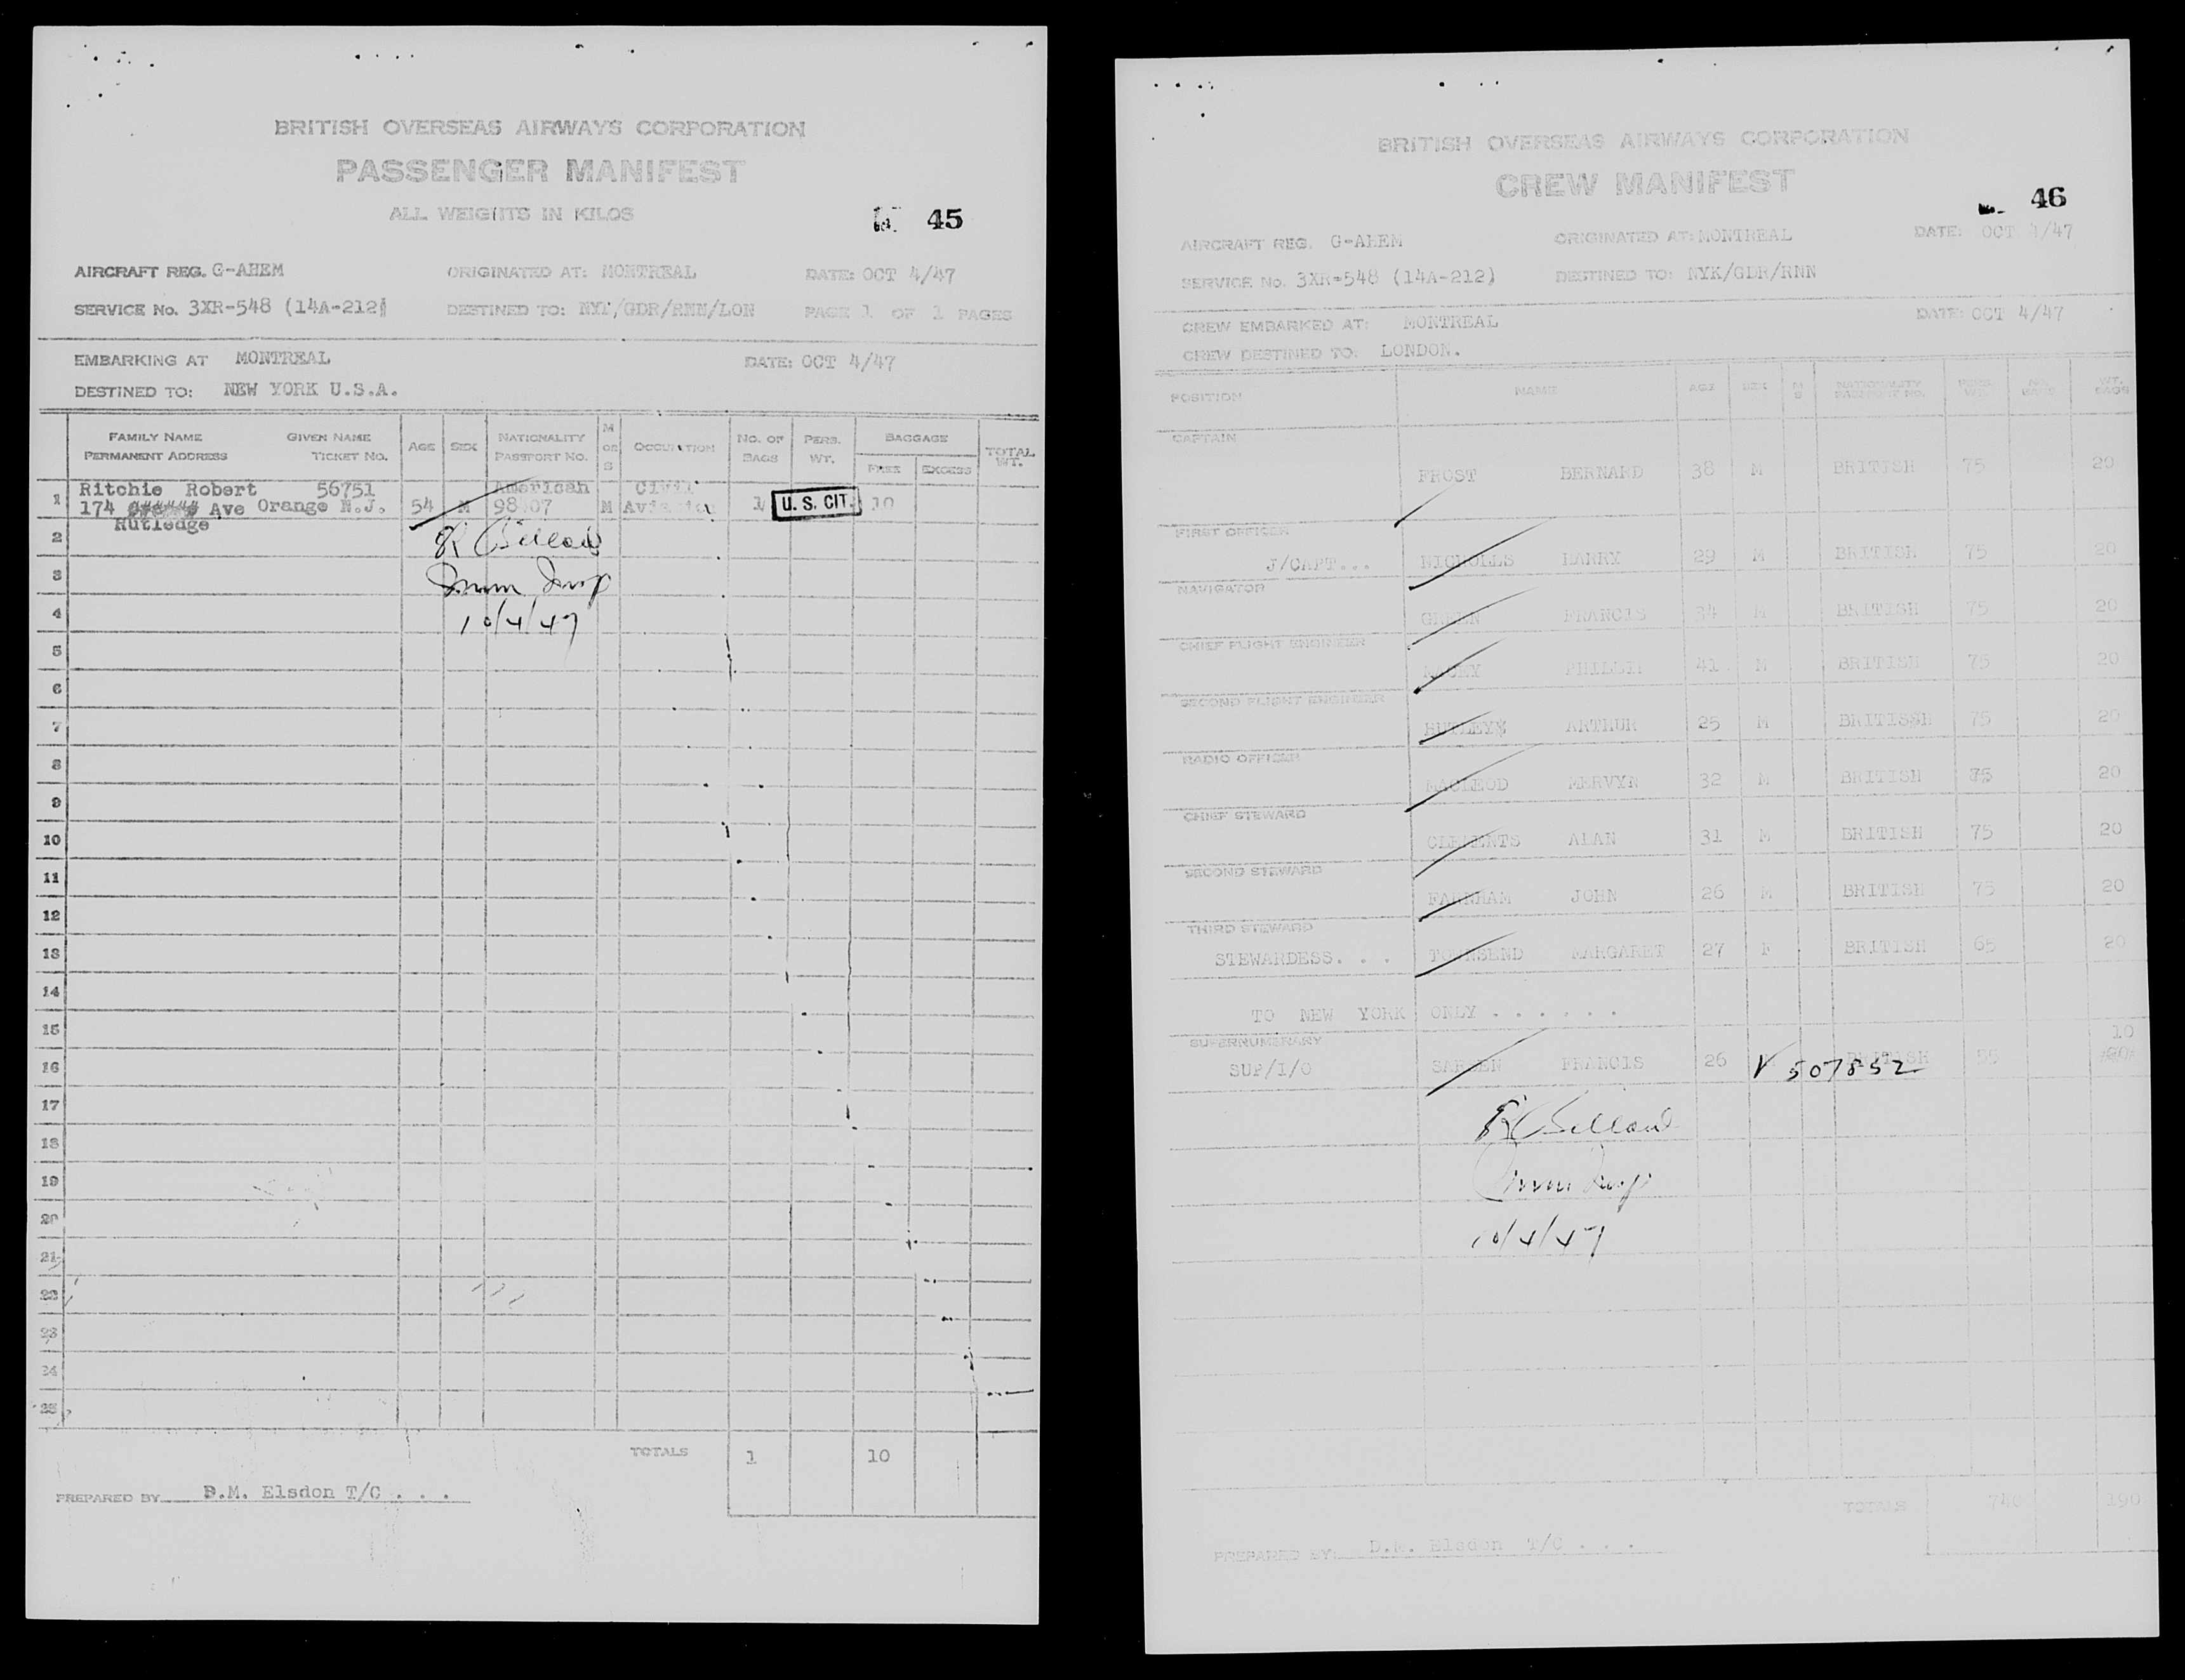 BRITISH OVERSEAS AIRWAYS CORPORATION
PASSENGER MANIFEST
ALL WEIGHTS IN KILOS
45
AIRCRAFT REG. G-AHEM ORIGINATED AT: MONTREAL DATE: OCT 4/47
SERVICE No. 3XR-548 (14A-212) DESTINED TO: NYK/GDR/RNN/LON PAGE 1 OF 1 PAGES
EMBARKING AT MONTREAL DATE: OCT 4/47
DESTINED TO: NEW YORK U.S.A.
FAMILY NAME GIVEN NAME AGE SEX NATIONALITY M OR S OCCUPATION NO. OF BAGS PERS. WT. BAGGAGE TOTAL WT.
PERMANENT ADDRESS TICKET NO. PASSPORT NO. FREE EXCESS
1 Ritchie Robert 56751 American Civil
174 Ave Orange N.J. 54 M 98 07 M Aviation 1 U. S. CIT. 10
Rutledge
2
3
4 10/4/47
5
6
7
8
9
10
11
12
13
14
15
16
17
18
19
20
21
22
23
24
25
TOTALS 1 10
PREPARED BY D.M. Elsdon T/C . . .
BRITISH OVERSEAS AIRWAYS CORPORATION
CREW MANIFEST
46
AIRCRAFT REG. G-AHEM ORIGINATED AT: MONTREAL DATE: OCT 4/47
SERVICE No. 3XR-548 (14A-212) DESTINED TO: NYK/GDR/RNN
CREW EMBARKED AT: MONTREAL DATE: OCT 4/47
CREW DESTINED TO: LONDON.
POSITION NAME AGE SEX M S NATIONALITY PASSPORT NO. PERS. WT. NO. BAGS WT. BAGS
CAPTAIN
FROST BERNARD 38 M BRITISH 75 20
FIRST OFFICER
J/CAPT... NICHOLLS HARRY 29 M BRITISH 75 20
NAVIGATOR
GREEN FRANCIS 34 M BRITISH 75 20
CHIEF FLIGHT ENGINEER
41 M BRITISH 75 20
SECOND FLIGHT ENGINEER
ARTHUR 25 M BRITISSH 75 20
RADIO OFFICER
MACLEOD MERVYN 32 M BRITISH 75 20
CHIEF STEWARD
CLEMENTS ALAN 31 M BRITISH 75 20
SECOND STEWARD
FARNHAM JOHN 26 M BRITISH 75 20
THIRD STEWARD
STEWARDESS. . . TOWNSEND MARGARET 27 F BRITISH 65 20
TO NEW YORK ONLY . . . . . .
SUPERNUMERARY 10
SUP/I/O FRANCIS 26 V 507852 BRITISH
10/4/47
TOTALS 740 190
PREPARED BY: D.M. Elsdon T/C . . .